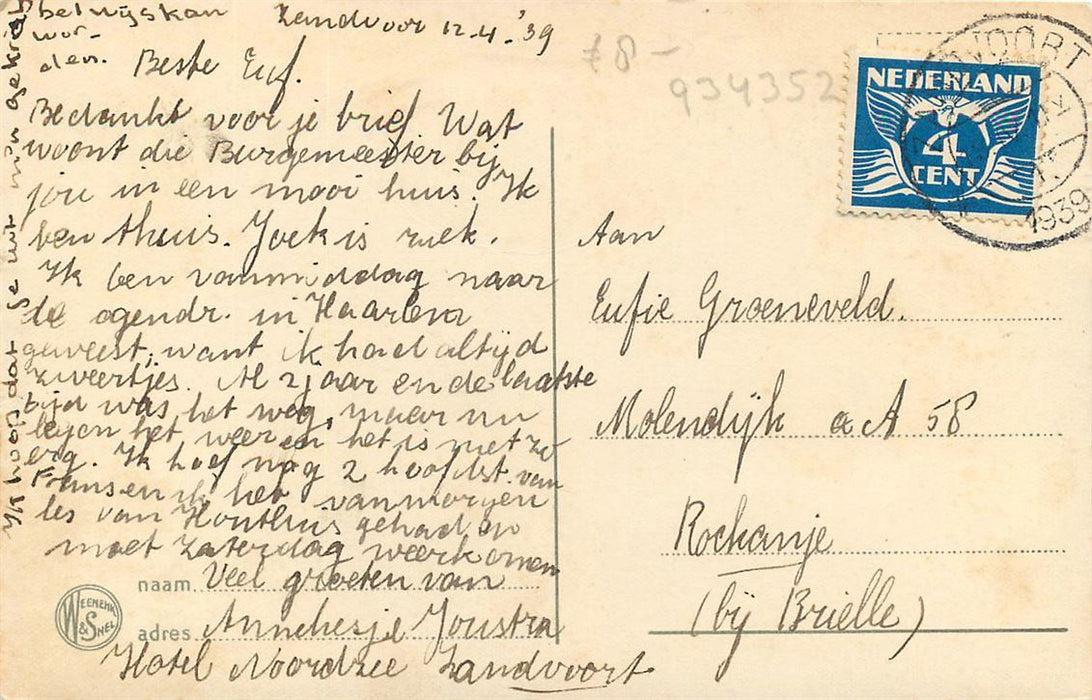 Zandvoor 12-4-'39
Beste Euf.
Bedankt voor je brief Wat
woont die Burgemeester bij
jou in een mooi huis. Ik
ben thuis. Joek is ziek.
Ik ben vanmiddag naar
de ogendr. in Haarlem
geweest, want ik had altijd
zweertjes. Al 2 jaar en de laatste
tijd was het weg, maar nu
het weer en het is niet zo
erg. Ik hoef nog 2 hoofdst. van
Frans en ik heb vanmorgen
les van Houthuis gehad en
moet Zaterdag weerkomen
Veel groeten van
naam
adres Annehesje Joustra
Hotel Noordzee Zandvoort
Ik hoop dat je uit mijn gekrab
wijs kan
wor-
den.
WEENENK & SNEL
78-
934352
NEDERLAND
4
CENT
ZANDVOORT
1939
Aan
Eufie Groeneveld.
Molendijk a A 58
Rockanje
(bij Brielle)